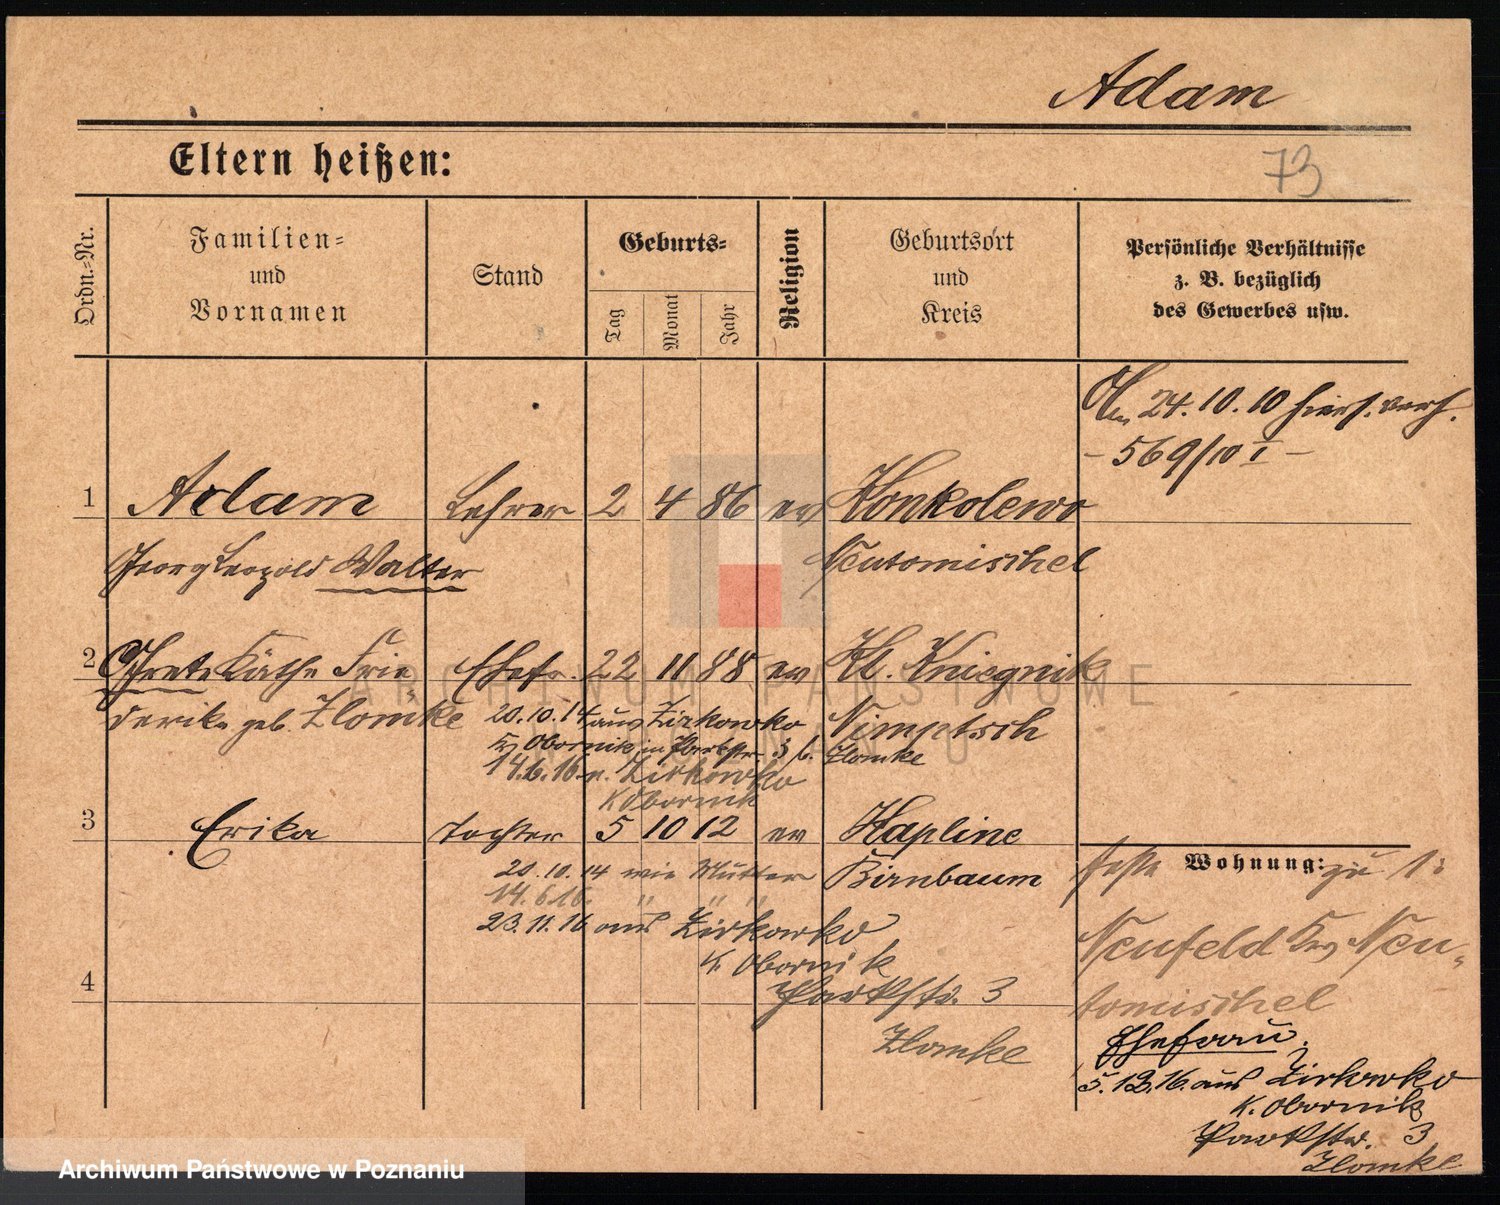 Adam
Eltern heißen:
73
Ordn.-Nr.
Familien-
und
Vornamen
Stand
Geburts-
Tag
Monat
Jahr
Religion
Geburtsort
und
Kreis
Persönliche Verhältnisse
z. B. bezüglich
des Gewerbes usw.
Am 24.10.10 hiers. verh.
– 569/10 I –
1 Adam Lehrer 2 4 86 ev Konkolewo
Georg Leopold Walter Neutomischel
2 Grete Käthe Frie- Ehefr. 22 11 88 ev Kl. Kniegnik
derike geb. Zlomke 20.10.14 aus Zirkowko Nimptsch
Kr Obornik in Parkstr 3 b. Zlomke
14.6.16 n. Zirkowko
K Obornik
3 Erika Tochter 5 10 12 ev Kapline
Birnbaum
20.10.14 wie Mutter
14.6.16. " " "
23.11.16 aus Zirkowko
K. Obornik
4 Parkstr. 3
Zlomke
feste Wohnung: zu 1:
Neufeld Kr Neu-
tomischel
Ehefrau.
5.12.16. aus Zirkowko
K. Obornik
Parkstr. 3
Zlomke
ARCHIWUM PAŃSTWOWE
W POZNANIU
Archiwum Państwowe w Poznaniu